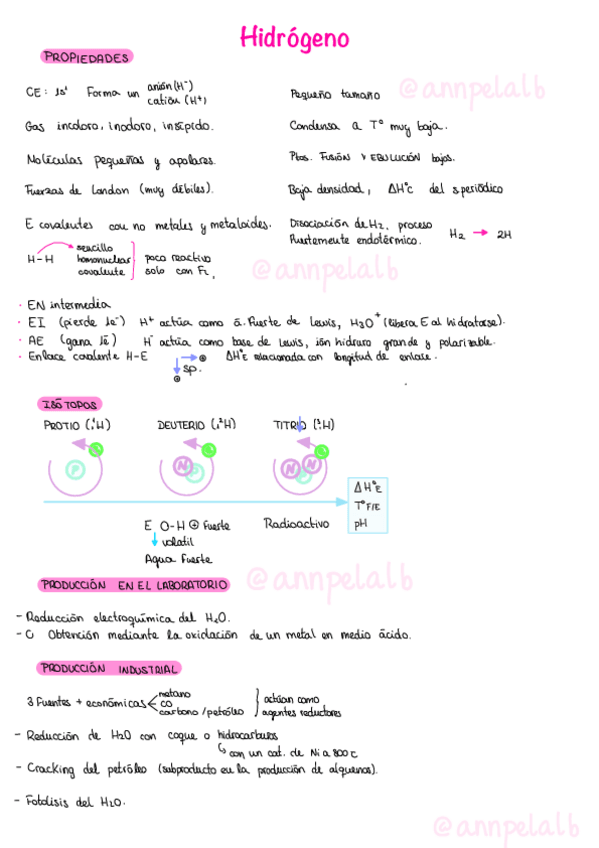 Hidrógeno
PROPIEDADES
@annpelalb
CE: 1s¹ Forma un anión (H⁻)
catión (H⁺)
Pequeño tamaño
Gas incoloro, inodoro, insípido.
Condensa a Tº muy baja.
Moléculas pequeñas y apolares.
Ptos. FUSIÓN Y EBULLICIÓN bajos.
Fuerzas de London (muy débiles).
Baja densidad, ΔHºC del s.periódico
E covalentes con no metales y metaloides.
Disociación de H₂, proceso
fuertemente endotérmico.
H₂ → 2H
H-H
sencillo
homonuclear
covalente
poco reactivo
solo con F₂,
@annpelalb
· EN intermedia
· EI (pierde 1e⁻) H⁺ actúa como á. Fuerte de Lewis, H₃O⁺ (libera E al hidratarse).
· AE (gana 1e⁻) H⁻ actúa como base de Lewis, ión hidruro grande y polarizable.
· Enlace covalente H-E
sp.
ΔHºE relacionada con longitud de enlace.
ISÓTOPOS
PROTIO (₁¹H)
DEUTERIO (₁²H)
TITRIO (₁³H)
P
N
P
N
N
P
ΔHºE
TºF/E
pH
E O-H ⊕ fuerte
volatil
Agua fuerte
Radioactivo
PRODUCCIÓN EN EL LABORATORIO
@annpelalb
- Reducción electroquímica del H₂O.
- O Obtención mediante la oxidación de un metal en medio ácido.
PRODUCCIÓN INDUSTRIAL
3 Fuentes + económicas
metano
CO
carbono/petróleo
actúan como
agentes reductores
- Reducción de H2O con coque o hidrocarburos
con un cat. de Ni a 800ºC
- Cracking del petróleo (subproducto en la producción de alquenos).
- Fotólisis del H2O.
@annpelalb